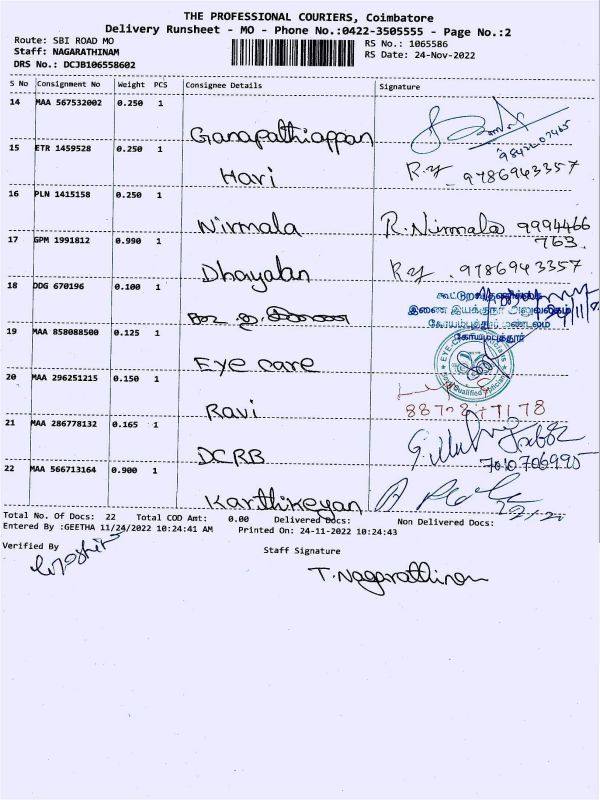 THE PROFESSIONAL COURIERS, Coimbatore
Delivery Runsheet - MO - Phone No.:0422-3505555 - Page No.:2
Route: SBI ROAD MO
RS No.: 1065586
Staff: NAGARATHINAM
RS Date: 24-Nov-2022
DRS No.: DCJB106558602
S No Consignment No Weight PCS Consignee Details Signature
14 MAA 567532002 0.250 1
Ganapathiappan
15 ETR 1459528 0.250 1
Hari 9786943357
16 PLN 1415158 0.250 1
Nirmala R. Nirmala 9994466
763
17 GPM 1991812 0.990 1
Dhayalan 9786943357
18 DDG 670196 0.100 1
இணை இயக்குநர் அலுவலகம்
கோயம்புத்தூர் மண்டலம்
கோயம்புத்தூர்
19 MAA 858088500 0.125 1
Eye care
20 MAA 296251215 0.150 1
Ravi
21 MAA 286778132 0.165 1
DCRB
22 MAA 566713164 0.900 1
Karthikeyan
Total No. Of Docs: 22 Total COD Amt: 0.00 Delivered Docs: Non Delivered Docs:
Entered By :GEETHA 11/24/2022 10:24:41 AM Printed On: 24-11-2022 10:24:43
Verified By
Staff Signature
T. Nagarathinam